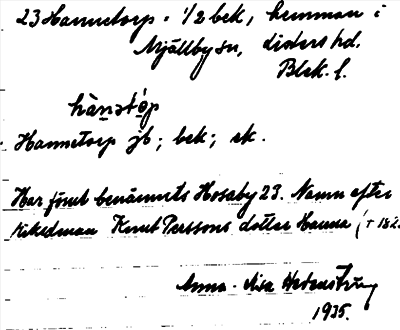 23 Hannetorp. 1/2 bek, hemman i
Mjällby sn, Listers hd.
Blek. l.
hànstòp
Hannetorp jb; bek; ek.
Har förut benämnts Hosaby 23. Namn efter
riksdman Knut Perssons dotter Hanna († 182
Anna-Lisa
1935.